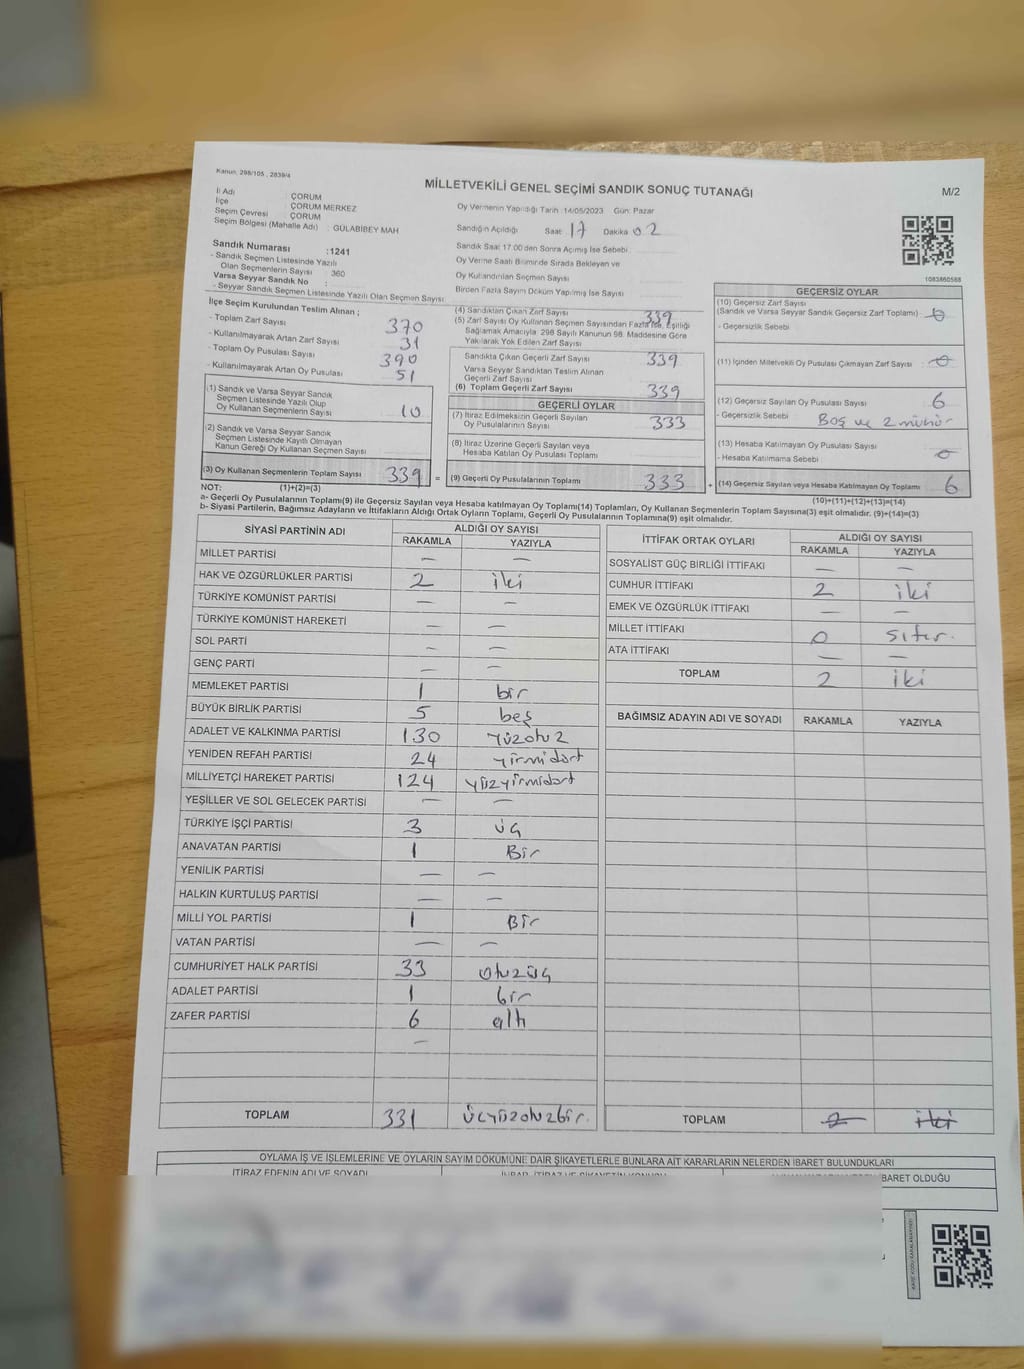 Kanun: 298/105 , 2839/4
MİLLETVEKİLİ GENEL SEÇİMİ SANDIK SONUÇ TUTANAĞI
M/2
İl Adı : ÇORUM
İlçe : ÇORUM MERKEZ
Seçim Çevresi : ÇORUM
Seçim Bölgesi (Mahalle Adı) : GÜLABİBEY MAH
Oy Vermenin Yapıldığı Tarih: 14/05/2023 Gün: Pazar
Sandığın Açıldığı Saat: 17 Dakika 02
Sandık Saat 17.00'den Sonra Açılmış İse Sebebi:
Oy Verme Saati Bitiminde Sırada Bekleyen ve
Oy Kullandırılan Seçmen Sayısı
Birden Fazla Sayım Döküm Yapılmış İse Sayısı
1083860588
Sandık Numarası :1241
- Sandık Seçmen Listesinde Yazılı
Olan Seçmenlerin Sayısı : 360
Varsa Seyyar Sandık No :
- Seyyar Sandık Seçmen Listesinde Yazılı Olan Seçmen Sayısı:
İlçe Seçim Kurulundan Teslim Alınan ;
- Toplam Zarf Sayısı 370
- Kullanılmayarak Artan Zarf Sayısı 31
- Toplam Oy Pusulası Sayısı 390
- Kullanılmayarak Artan Oy Pusulası 51
(1) Sandık ve Varsa Seyyar Sandık
Seçmen Listesinde Yazılı Olup
Oy Kullanan Seçmenlerin Sayısı 10
(2) Sandık ve Varsa Seyyar Sandık
Seçmen Listesinde Kayıtlı Olmayan
Kanun Gereği Oy Kullanan Seçmen Sayısı
(3) Oy Kullanan Seçmenlerin Toplam Sayısı 339 =
(4) Sandıktan Çıkan Zarf Sayısı 339
(5) Zarf Sayısı Oy Kullanan Seçmen Sayısından Fazla İse, Eşitliği
Sağlamak Amacıyla 298 Sayılı Kanunun 98. Maddesine Göre
Yakılarak Yok Edilen Zarf Sayısı
Sandıkta Çıkan Geçerli Zarf Sayısı 339
Varsa Seyyar Sandıktan Teslim Alınan
Geçerli Zarf Sayısı
(6) Toplam Geçerli Zarf Sayısı 339
GEÇERLİ OYLAR
(7) İtiraz Edilmeksizin Geçerli Sayılan
Oy Pusulalarının Sayısı 333
(8) İtiraz Üzerine Geçerli Sayılan veya
Hesaba Katılan Oy Pusulası Toplamı
(9) Geçerli Oy Pusulalarının Toplamı 333 +
GEÇERSİZ OYLAR
(10) Geçersiz Zarf Sayısı
(Sandık ve Varsa Seyyar Sandık Geçersiz Zarf Toplamı)
- Geçersizlik Sebebi
(11) İçinden Milletvekili Oy Pusulası Çıkmayan Zarf Sayısı : 0
(12) Geçersiz Sayılan Oy Pusulası Sayısı 6
- Geçersizlik Sebebi : Boş ve 2 mühür
(13) Hesaba Katılmayan Oy Pusulası Sayısı
- Hesaba Katılmama Sebebi 0
(14) Geçersiz Sayılan veya Hesaba Katılmayan Oy Toplamı 6
NOT: (1)+(2)=(3) (10)+(11)+(12)+(13)=(14)
a- Geçerli Oy Pusulalarının Toplamı(9) ile Geçersiz Sayılan veya Hesaba katılmayan Oy Toplamı(14) Toplamları, Oy Kullanan Seçmenlerin Toplam Sayısına(3) eşit olmalıdır. (9)+(14)=(3)
b- Siyasi Partilerin, Bağımsız Adayların ve İttifakların Aldığı Ortak Oyların Toplamı, Geçerli Oy Pusulalarının Toplamına(9) eşit olmalıdır.
SİYASİ PARTİNİN ADI ALDIĞI OY SAYISI
RAKAMLA YAZIYLA
MİLLET PARTİSİ — —
HAK VE ÖZGÜRLÜKLER PARTİSİ 2 iki
TÜRKİYE KOMÜNİST PARTİSİ — —
TÜRKİYE KOMÜNİST HAREKETİ — —
SOL PARTİ — —
GENÇ PARTİ — —
MEMLEKET PARTİSİ 1 bir
BÜYÜK BİRLİK PARTİSİ 5 beş
ADALET VE KALKINMA PARTİSİ 130 Yüzotuz
YENİDEN REFAH PARTİSİ 24 yirmidört
MİLLİYETÇİ HAREKET PARTİSİ 124 yüzyirmidört
YEŞİLLER VE SOL GELECEK PARTİSİ — —
TÜRKİYE İŞÇİ PARTİSİ 3 üç
ANAVATAN PARTİSİ 1 Bir
YENİLİK PARTİSİ — —
HALKIN KURTULUŞ PARTİSİ — —
MİLLİ YOL PARTİSİ 1 Bir
VATAN PARTİSİ — —
CUMHURİYET HALK PARTİSİ 33 otuzüç
ADALET PARTİSİ 1 bir
ZAFER PARTİSİ 6 altı
—
TOPLAM 331 üçyüzotuzbir.
İTTİFAK ORTAK OYLARI ALDIĞI OY SAYISI
RAKAMLA YAZIYLA
SOSYALİST GÜÇ BİRLİĞİ İTTİFAKI — —
CUMHUR İTTİFAKI 2 iki
EMEK VE ÖZGÜRLÜK İTTİFAKI — —
MİLLET İTTİFAKI 0 sıfır.
ATA İTTİFAKI — —
TOPLAM 2 iki
BAĞIMSIZ ADAYIN ADI VE SOYADI RAKAMLA YAZIYLA
TOPLAM 2 iki
OYLAMA İŞ VE İŞLEMLERİNE VE OYLARIN SAYIM DÖKÜMÜNE DAİR ŞİKAYETLERLE BUNLARA AİT KARARLARIN NELERDEN İBARET BULUNDUKLARI
İTİRAZ EDENİN ADI VE SOYADI
İBARET OLDUĞU